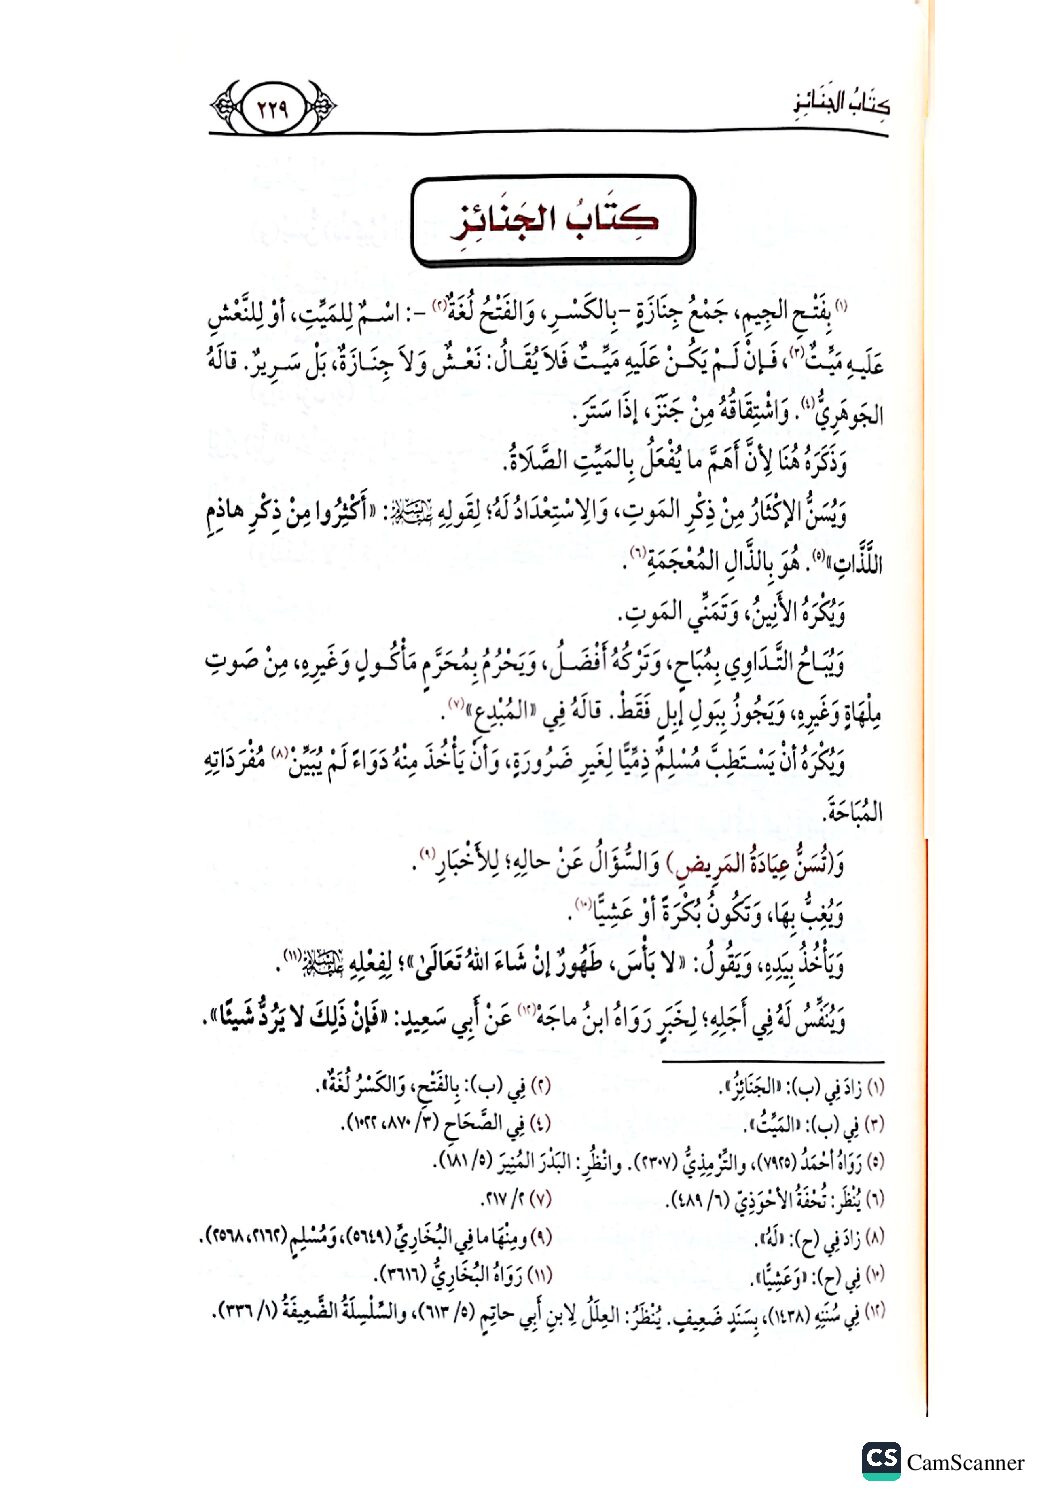 كِتَابُ الجَنَائِزِ
٢٢٩
كِتَابُ الجَنَائِزِ
(١) بِفَتْحِ الجِيمِ، جَمْعُ جِنَازَةٍ -بِالكَسْرِ، وَالفَتْحُ لُغَةٌ(٢) -: اسْمٌ لِلمَيِّتِ، أوْ لِلنَّعْشِ
عَلَيهِ مَيِّتٌ(٣)، فَإنْ لَمْ يَكُنْ عَلَيهِ مَيِّتٌ فَلاَ يُقَالُ: نَعْشٌ وَلاَ جِنَازَةٌ، بَلْ سَرِيرٌ. قالَهُ
الجَوهَرِيُّ(٤). وَاشْتِقَاقُهُ مِنْ جَنَزَ، إذَا سَتَرَ.
وَذَكَرَهُ هُنَا لِأنَّ أَهَمَّ ما يُفْعَلُ بِالمَيِّتِ الصَّلَاةُ.
وَيُسَنُّ الإكْثَارُ مِنْ ذِكْرِ المَوتِ، وَالِاسْتِعْدَادُ لَهُ؛ لِقَولِهِ عَلَيْهِ السَّلَام: «أَكْثِرُوا مِنْ ذِكْرِ هاذِمِ
اللَّذَّاتِ»(٥). هُوَ بِالذَّالِ المُعْجَمَةِ(٦).
وَيُكْرَهُ الأَنِينُ، وَتَمَنِّي المَوتِ.
وَيُبَاحُ التَّدَاوِي بِمُبَاحٍ، وَتَرْكُهُ أَفْضَلُ، وَيَحْرُمُ بِمُحَرَّمٍ مَأْكُولٍ وَغَيرِهِ، مِنْ صَوتِ
مِلْهَاةٍ وَغَيرِهِ، وَيَجُوزُ بِبَولِ إبِلٍ فَقَطْ. قالَهُ فِي «المُبْدِعِ»(٧).
وَيُكْرَهُ أنْ يَسْتَطِبَّ مُسْلِمٌ ذِمِّيًّا لِغَيرِ ضَرُورَةٍ، وَأنْ يَأْخُذَ مِنْهُ دَوَاءً لَمْ يُبَيِّنْ(٨) مُفْرَدَاتِهِ
المُبَاحَةَ.
وَ(تُسَنُّ عِيَادَةُ المَرِيضِ) وَالسُّؤَالُ عَنْ حالِهِ؛ لِلأَخْبَارِ(٩).
وَيُغِبُّ بِهَا، وَتَكُونُ بُكْرَةً أوْ عَشِيًّا(١٠).
وَيَأْخُذُ بِيَدِهِ، وَيَقُولُ: «لا بَأْسَ، طَهُورٌ إنْ شَاءَ اللهُ تَعَالَىٰ»؛ لِفِعْلِهِ عَلَيْهِ السَّلَام(١١).
وَيُنَفِّسُ لَهُ فِي أَجَلِهِ؛ لِخَبَرِ رَوَاهُ ابنُ ماجَهْ(١٢) عَنْ أَبِي سَعِيدٍ: «فَإنْ ذَلِكَ لا يَرُدُّ شَيئًا».
(١) زادَ فِي (ب): «الجَنَائِزُ». (٢) فِي (ب): بِالفَتْحِ، وَالكَسْرُ لُغَةٌ».
(٣) فِي (ب): «المَيِّتُ». (٤) فِي الصَّحَاحِ (٣/ ٨٧٠، ١٠٢٢).
(٥) رَوَاهُ أحْمَدُ (٧٩٢٥)، والتِّرْمِذِيُّ (٢٣٠٧). وانْظُرِ: البَدْرَ المُنِيرَ (٥/ ١٨١).
(٦) يُنْظَر: تُحْفَةُ الأحْوَذِيِّ (٦/ ٤٨٩). (٧) ٢/ ٢١٧.
(٨) زادَ فِي (ح): «لَهُ». (٩) ومِنْهَا ما فِي البُخَارِيِّ (٥٦٤٩)، وَمُسْلِمٍ (٢١٦٢، ٢٥٦٨).
(١٠) فِي (ح): «وَعَشِيًّا». (١١) رَوَاهُ البُخَارِيُّ (٣٦١٦).
(١٢) فِي سُنَنِهِ (١٤٣٨)، بِسَنَدٍ ضَعِيفٍ. يُنْظَرُ: العِلَلُ لِابنِ أَبِي حاتِمٍ (٥/ ٦١٣)، والسِّلْسِلَةُ الضَّعِيفَةُ (١/ ٣٣٦).
CS CamScanner